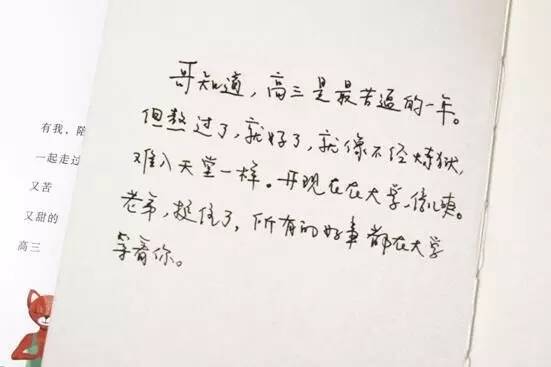 哥知道，高三是最苦逼的一年。
但熬过了，就好了，就像不经炼狱，
难入天堂一样。哥现在在大学，倍儿爽。
老弟，挺住了，所有的好事都在大学
等着你。
有我，陪
一起走过
又苦
又甜的
高三